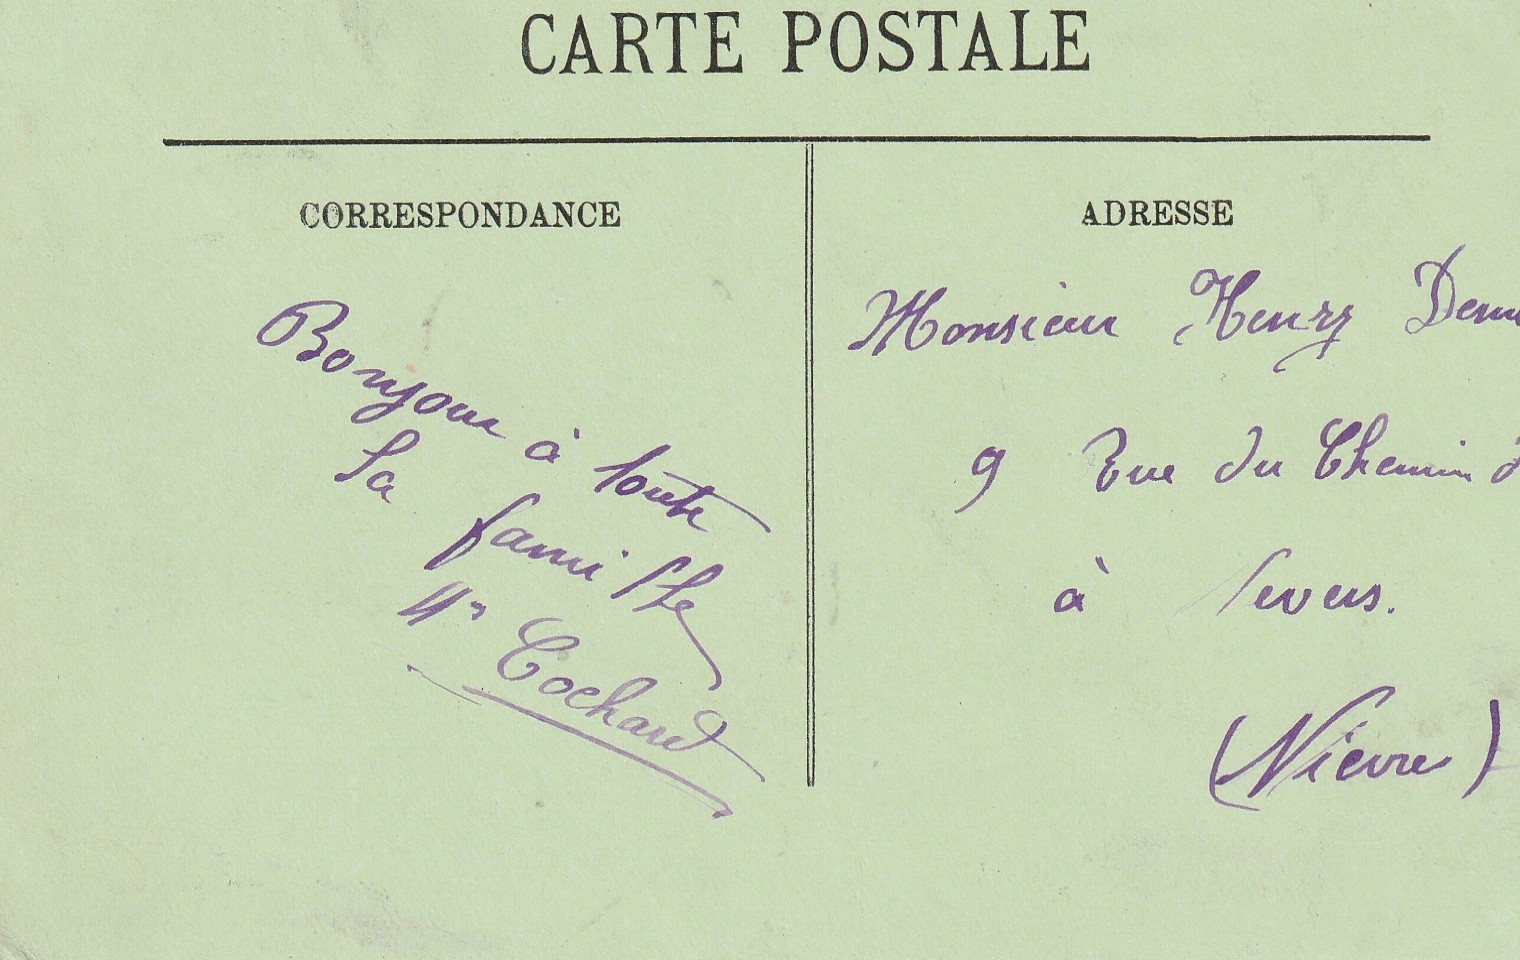 CARTE POSTALE
CORRESPONDANCE
Bonjour à toute
la famille
Cochard
ADRESSE
Monsieur Henry
9 Rue du Chemin
à Nevers.
(Nièvre)